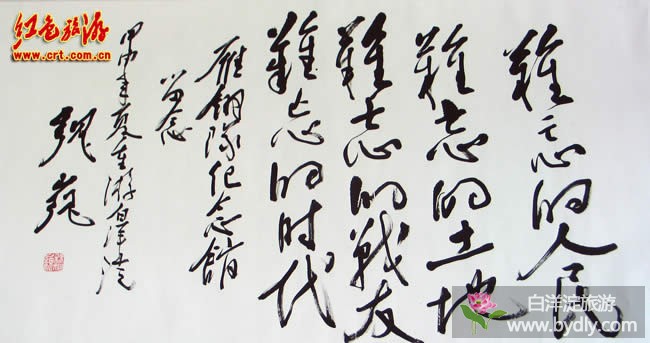 难忘的人民
難忘的土地
難忘的戰友
難忘的时代
雁翎隊纪念館
留念
甲申年夏重游白洋淀
魏巍
红色旅游
www.crt.com.cn
白洋淀旅游
www.bydly.com